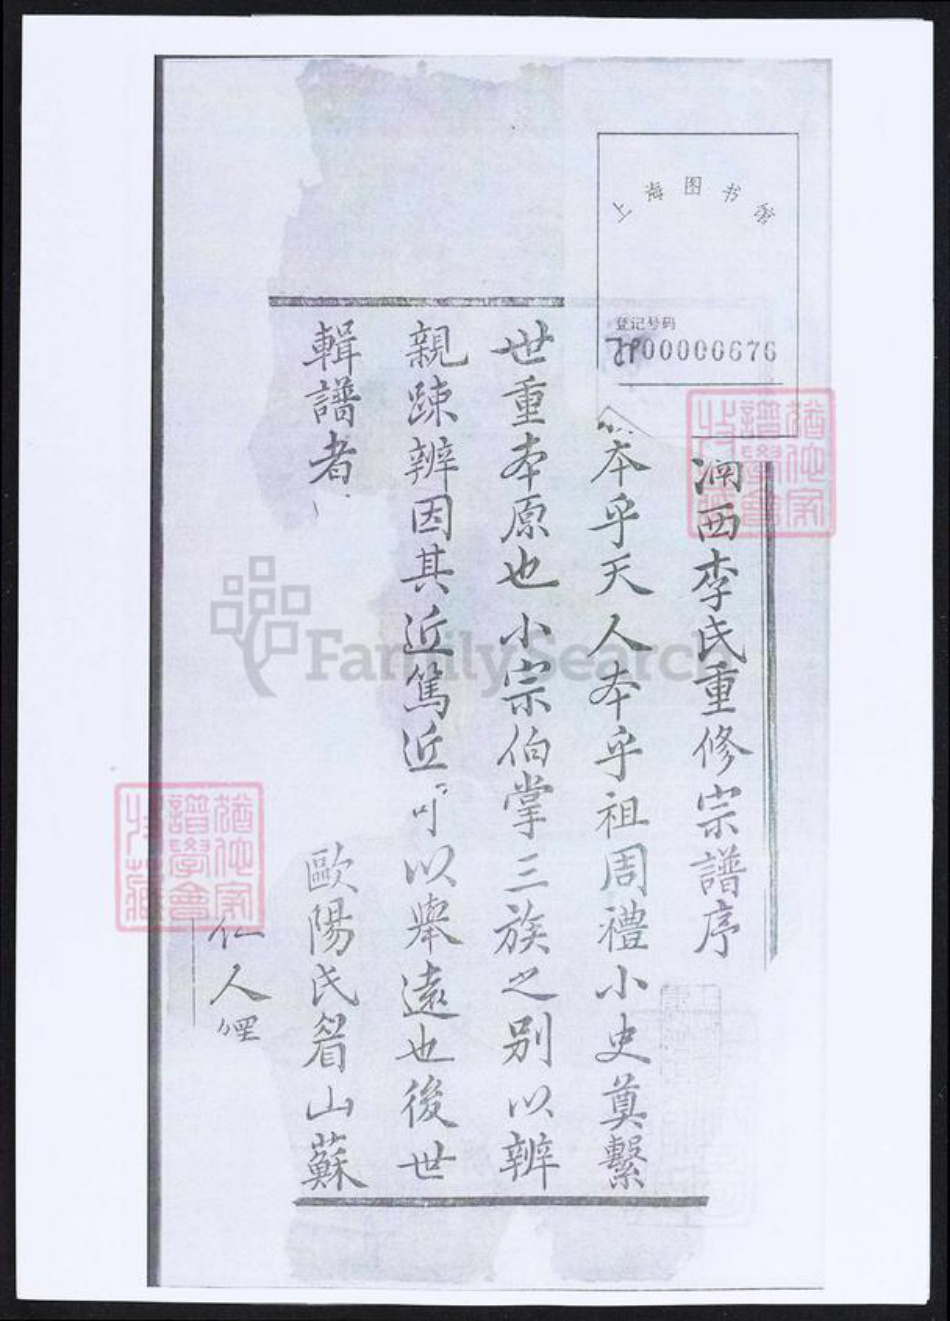 上海图书馆
登记号码
JP00000676
潤西李氏重修宗譜序
本乎天人本乎祖周禮小史奠繫
世重本原也小宗伯掌三族之別以辨
親踈辨因其近篤近可以舉遠也後世
輯譜者 歐陽氏眉山蘇
仁人
猶他家譜學會收藏
猶他家譜學會收藏
FamilySearch